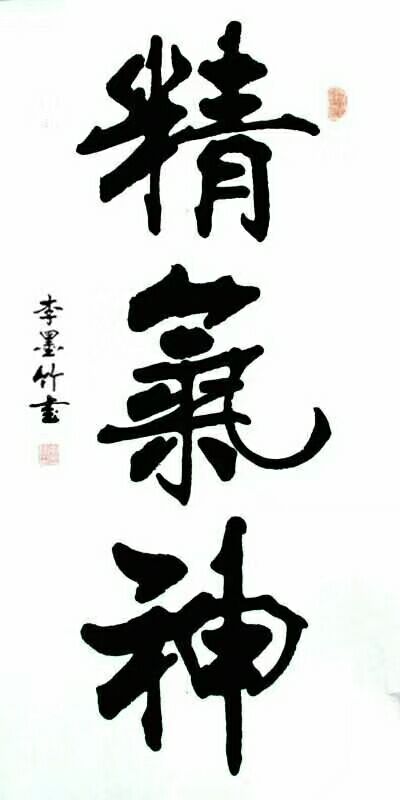 精氣神
李墨竹書